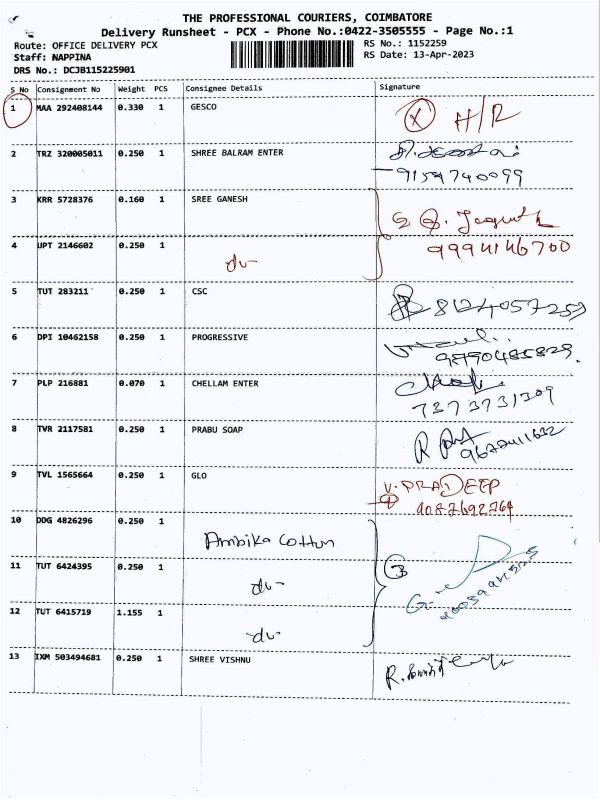 THE PROFESSIONAL COURIERS, COIMBATORE
Delivery Runsheet - PCX - Phone No.:0422-3505555 - Page No.:1
Route: OFFICE DELIVERY PCX RS No.: 1152259
Staff: NAPPINA RS Date: 13-Apr-2023
DRS No.: DCJB115225901
S No Consignment No Weight PCS Consignee Details Signature
1 MAA 292408144 0.330 1 GESCO X H/R
2 TRZ 320005011 0.250 1 SHREE BALRAM ENTER
9159740099
3 KRR 5728376 0.160 1 SREE GANESH
4 UPT 2146602 0.250 1 9994146700
du-
5 TUT 283211 0.250 1 CSC 8124057259
6 DPI 10462158 0.250 1 PROGRESSIVE
7 PLP 216881 0.070 1 CHELLAM ENTER
7373731309
8 TVR 2117581 0.250 1 PRABU SOAP
9 TVL 1565664 0.250 1 GLO V. PRADEEP
10 DDG 4826296 0.250 1
Ambika Cotton
11 TUT 6424395 0.250 1 3
du-
12 TUT 6415719 1.155 1
du-
13 IXM 503494681 0.250 1 SHREE VISHNU